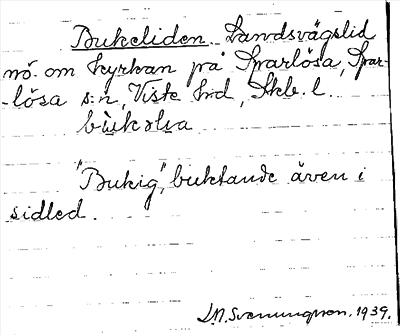 Bukeliden. Landsvägslid
nö. om kyrkan på Sparlösa, Spar-
-lösa s:n, Viste hd, Skb. l.
"Bukig", buktande även i
sidled.
1939.